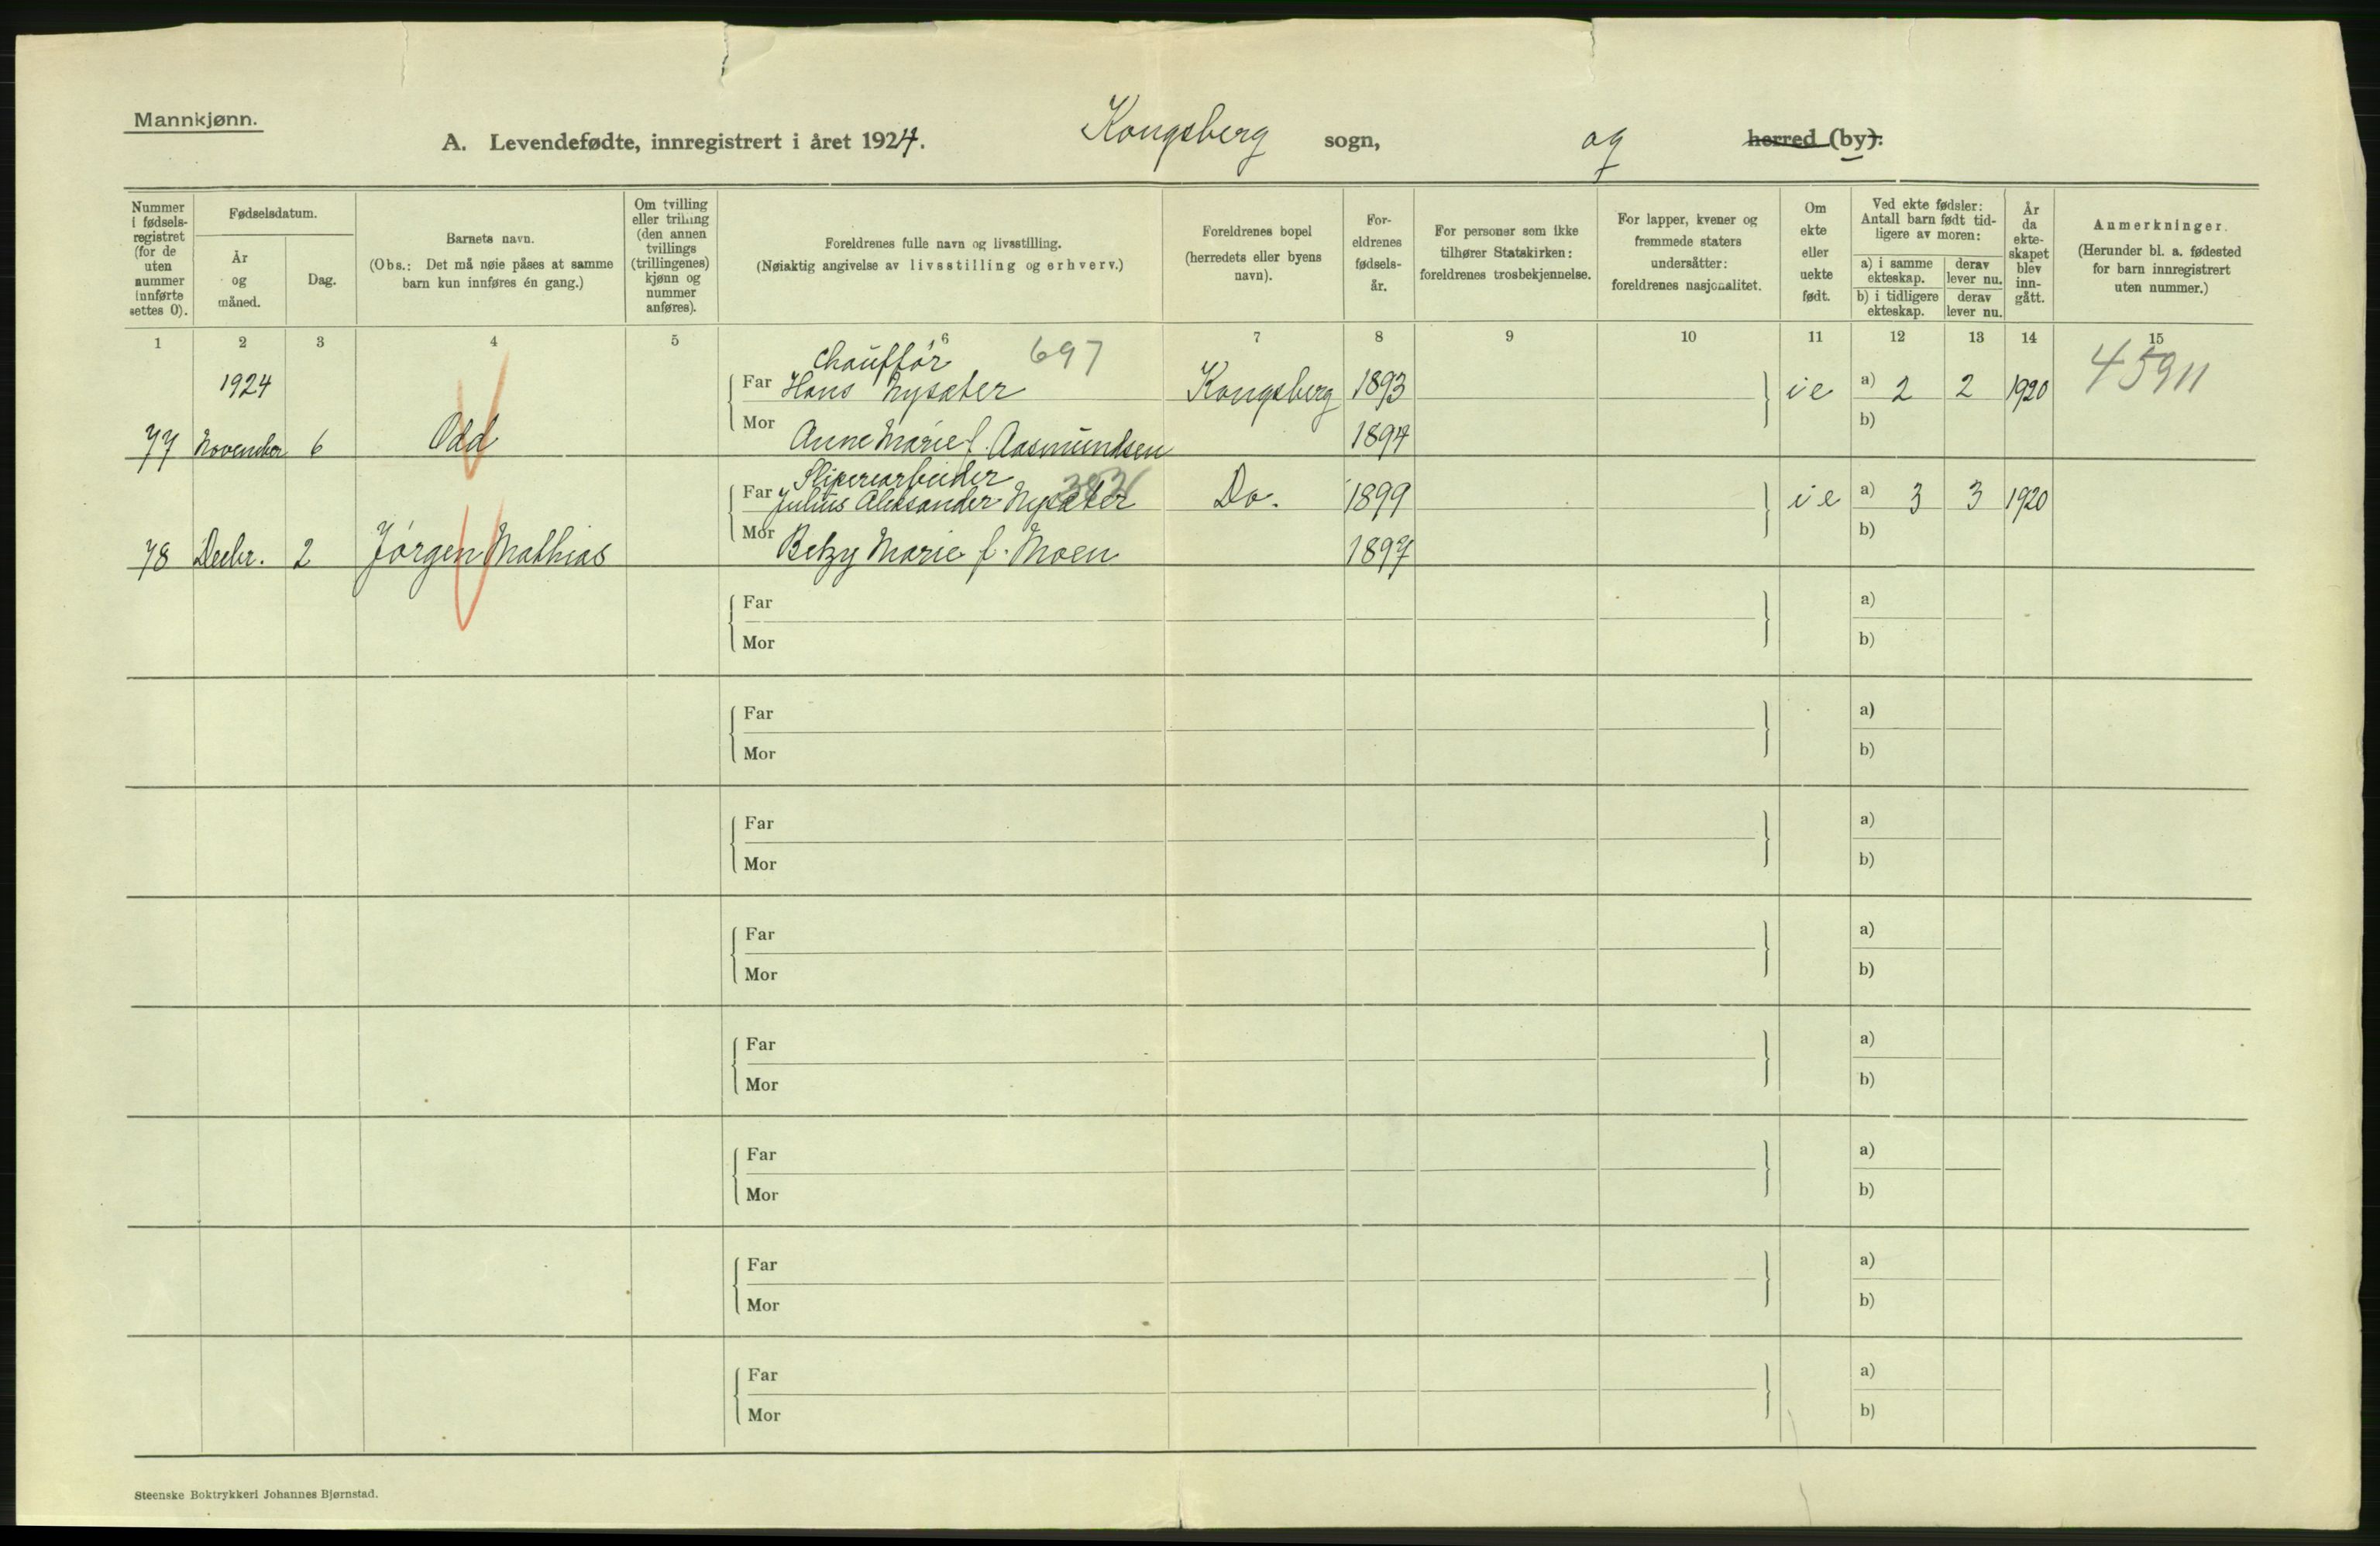 Mannkjønn.
A. Levendefødte, innregistrert i året 1924. Kongsberg sogn, og herred (by).
Nummer i fødsels- registret (for de uten nummer innførte settes 0).
Fødselsdatum.
År og måned.
Dag.
Barnets navn.
(Obs.: Det må nøie påses at samme barn kun innføres én gang.)
Om tvilling eller trilling (den annen tvillings (trillingenes) kjønn og nummer anføres).
Foreldrenes fulle navn og livsstilling.
(Nøiaktig angivelse av livsstilling og erhverv.)
Foreldrenes bopel (herredets eller byens navn).
For- eldrenes fødsels- år.
For personer som ikke tilhører Statskirken: foreldrenes trosbekjennelse.
For lapper, kvener og fremmede staters undersåtter: foreldrenes nasjonalitet.
Om ekte eller uekte født.
Ved ekte fødsler: Antall barn født tid- ligere av moren:
a) i samme ekteskap. derav lever nu.
b) i tidligere ekteskap. derav lever nu.
År da ekte- skapet blev inn- gått.
Anmerkninger.
(Herunder bl. a. fødested for barn innregistrert uten nummer.)
1 2 3 4 5 6 7 8 9 10 11 12 13 14 15
Chauffør 697
1924 Far Hans Nysæter Kongsberg 1893 i e a) 2 2 1920 45911
77 November 6 Odd Mor Anne Marie f. Aasmundsen 1894 b)
Sliperiarbeider
Far Julius Aleksander Nysæter Do. 1899 i e a) 3 3 1920
78 Decbr. 2 Jørgen Mathias Mor Betzy Marie f. Moen 1897 b)
Far a)
Mor b)
Far a)
Mor b)
Far a)
Mor b)
Far a)
Mor b)
Far a)
Mor b)
Far a)
Mor b)
Far a)
Mor b)
Far a)
Mor b)
Steenske Boktrykkeri Johannes Bjørnstad.